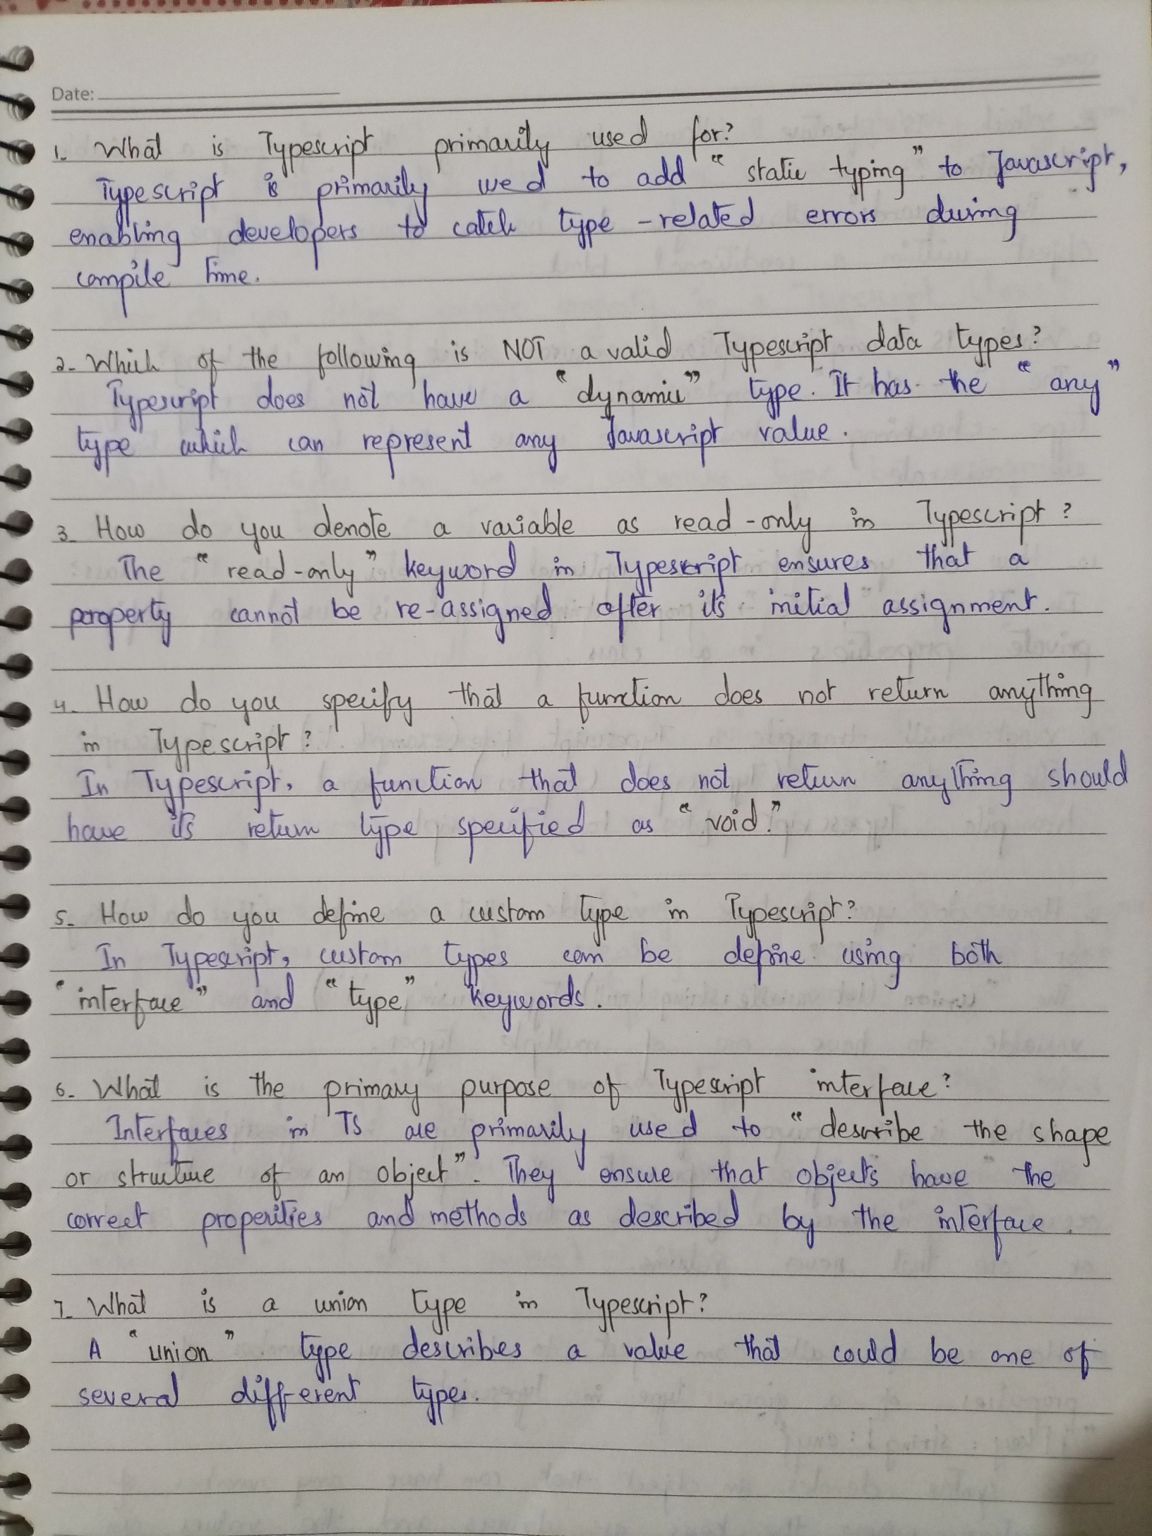 Date:
1. What is Typescript primarily used for?
Typescript is primarily used to add "static typing" to Javascript,
enabling developers to catch type-related errors during
compile time.
2. Which of the following is NOT a valid Typescript data types?
Typescript does not have a "dynamic" type. It has the "any"
type which can represent any Javascript value.
3. How do you denote a variable as read-only in Typescript?
The "read-only" keyword in Typescript ensures that a
property cannot be re-assigned after its initial assignment.
4. How do you specify that a function does not return anything
in Typescript?
In Typescript, a function that does not return anything should
have its return type specified as "void."
5. How do you define a custom type in Typescript?
In Typescript, custom types can be define using both
"interface" and "type" keywords.
6. What is the primary purpose of Typescript interface?
Interfaces in TS are primarily used to "describe the shape
or structure of an object". They ensure that objects have the
correct properities and methods as described by the interface.
7. What is a union type in Typescript?
A "union" type describes a value that could be one of
several different types.